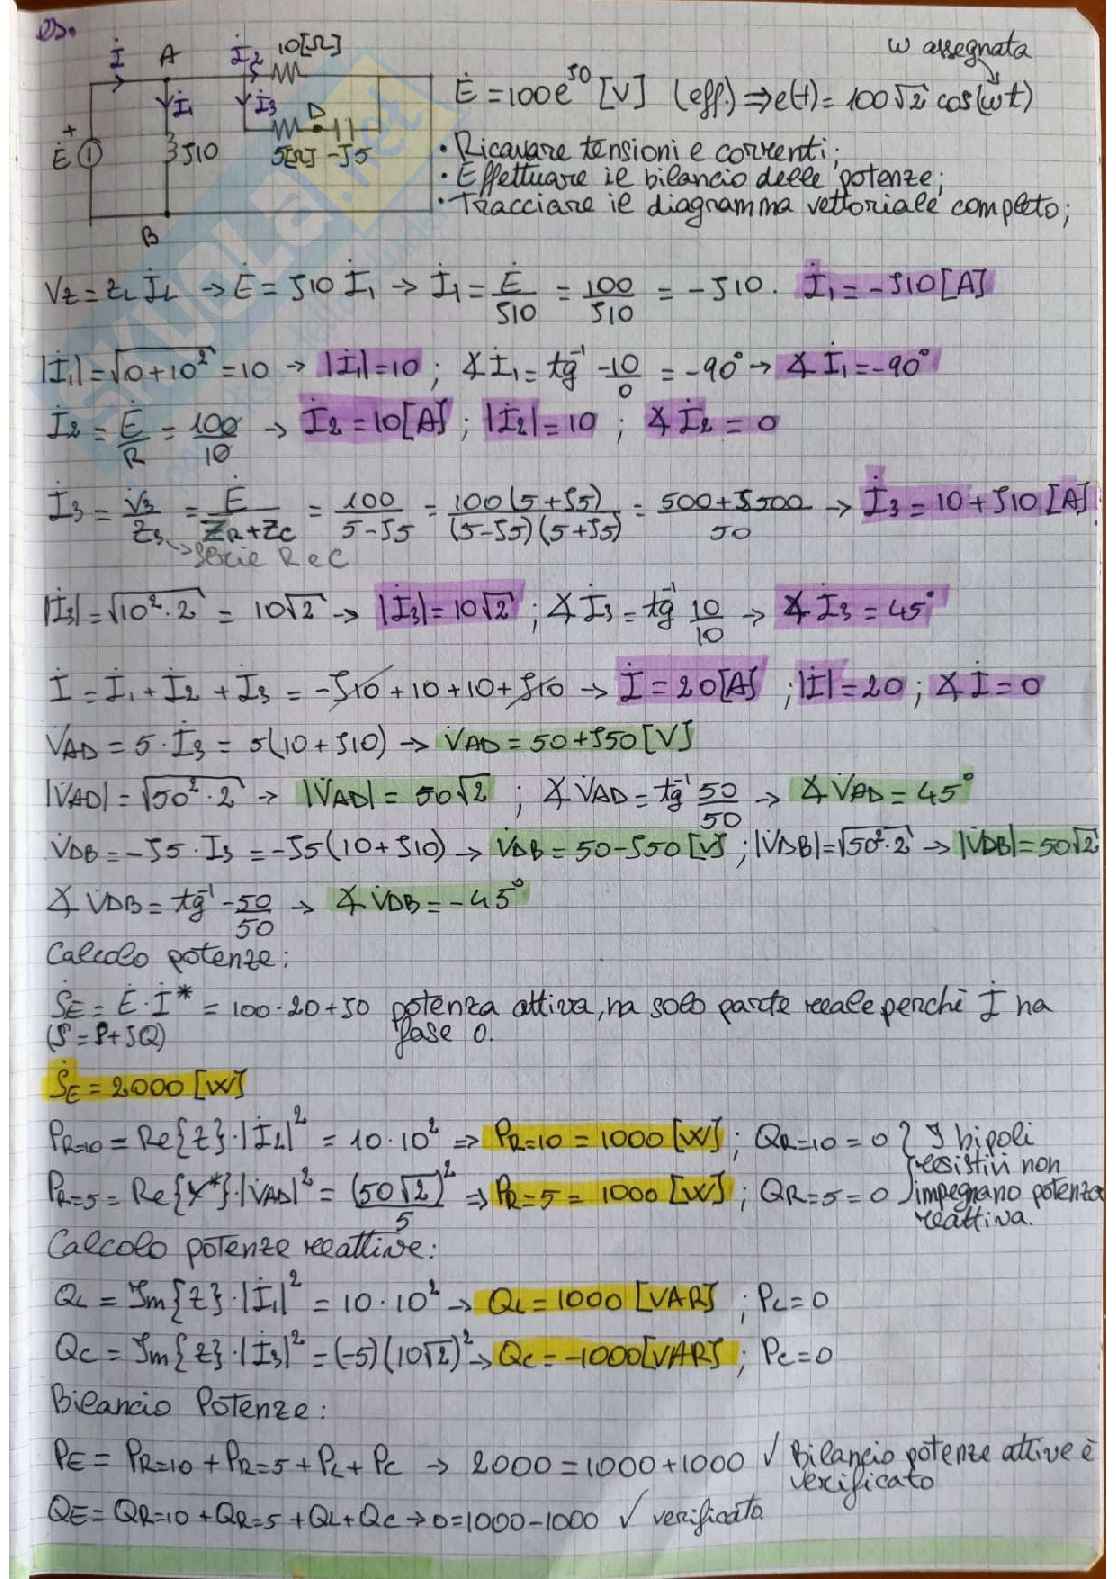 es.
İ A İ2 10[Ω] ω assegnata
İ1 İ3 D
+ Ė J10 5[Ω] -J5
B
Ė = 100e^J0 [V] (eff.) ⇒ e(t) = 100√2 cos(ωt)
• Ricavare tensioni e correnti;
• Effettuare il bilancio delle potenze;
• Tracciare il diagramma vettoriale completo;
VZ = ZL İL → Ė = J10 İ1 → İ1 = Ė/J10 = 100/J10 = -J10. İ1 = -J10 [A]
|İ1| = √0+10² = 10 → |İ1| = 10 ; ∡ İ1 = tg⁻¹ -10/0 = -90° → ∡ İ1 = -90°
İ2 = Ė/R = 100/10 → İ2 = 10[A] ; |İ2| = 10 ; ∡ İ2 = 0
İ3 = V̇3/Z3 = Ė/ZR+ZC = 100/5-J5 = 100(5+J5)/(5-J5)(5+J5) = 500+J500/50 → İ3 = 10+J10 [A]
→ serie R e C
|İ3| = √10²·2 = 10√2 → |İ3| = 10√2 ; ∡ İ3 = tg⁻¹ 10/10 → ∡ İ3 = 45°
İ = İ1 + İ2 + İ3 = -J10 + 10 + 10 + J10 → İ = 20[A] ; |İ| = 20 ; ∡ İ = 0
V̇AD = 5 · İ3 = 5(10+J10) → V̇AD = 50+J50 [V]
|V̇AD| = √50²·2 → |V̇AD| = 50√2 ; ∡ V̇AD = tg⁻¹ 50/50 → ∡ V̇AD = 45°
V̇DB = -J5 · I3 = -J5(10+J10) → V̇DB = 50-J50 [V] ; |V̇DB| = √50²·2 → |V̇DB| = 50√2
∡ V̇DB = tg⁻¹ -50/50 → ∡ V̇DB = -45°
Calcolo potenze:
ṠE = Ė · İ* = 100·20+J0 potenza attiva, ha solo parte reale perchè İ ha
(Ṡ = P+JQ) fase 0.
ṠE = 2000 [W]
PR=10 = Re{Z}·|İ2|² = 10·10² ⇒ PR=10 = 1000 [W] ; QR=10 = 0 } I bipoli
resistivi non
PR=5 = Re{Y*}·|V̇AD|² = (50√2)²/5 ⇒ PR=5 = 1000 [W] ; QR=5 = 0 impegnano potenza
reattiva.
Calcolo potenze reattive:
QL = Im{Z}·|İ1|² = 10·10² → QL = 1000 [VAR] ; PL = 0
QC = Im{Z}·|İ3|² = (-5)(10√2)² → QC = -1000[VAR] ; PC = 0
Bilancio Potenze:
PE = PR=10 + PR=5 + PL + PC → 2000 = 1000+1000 ✓ Bilancio potenze attive è
verificato
QE = QR=10 + QR=5 + QL + QC → 0 = 1000-1000 ✓ verificato